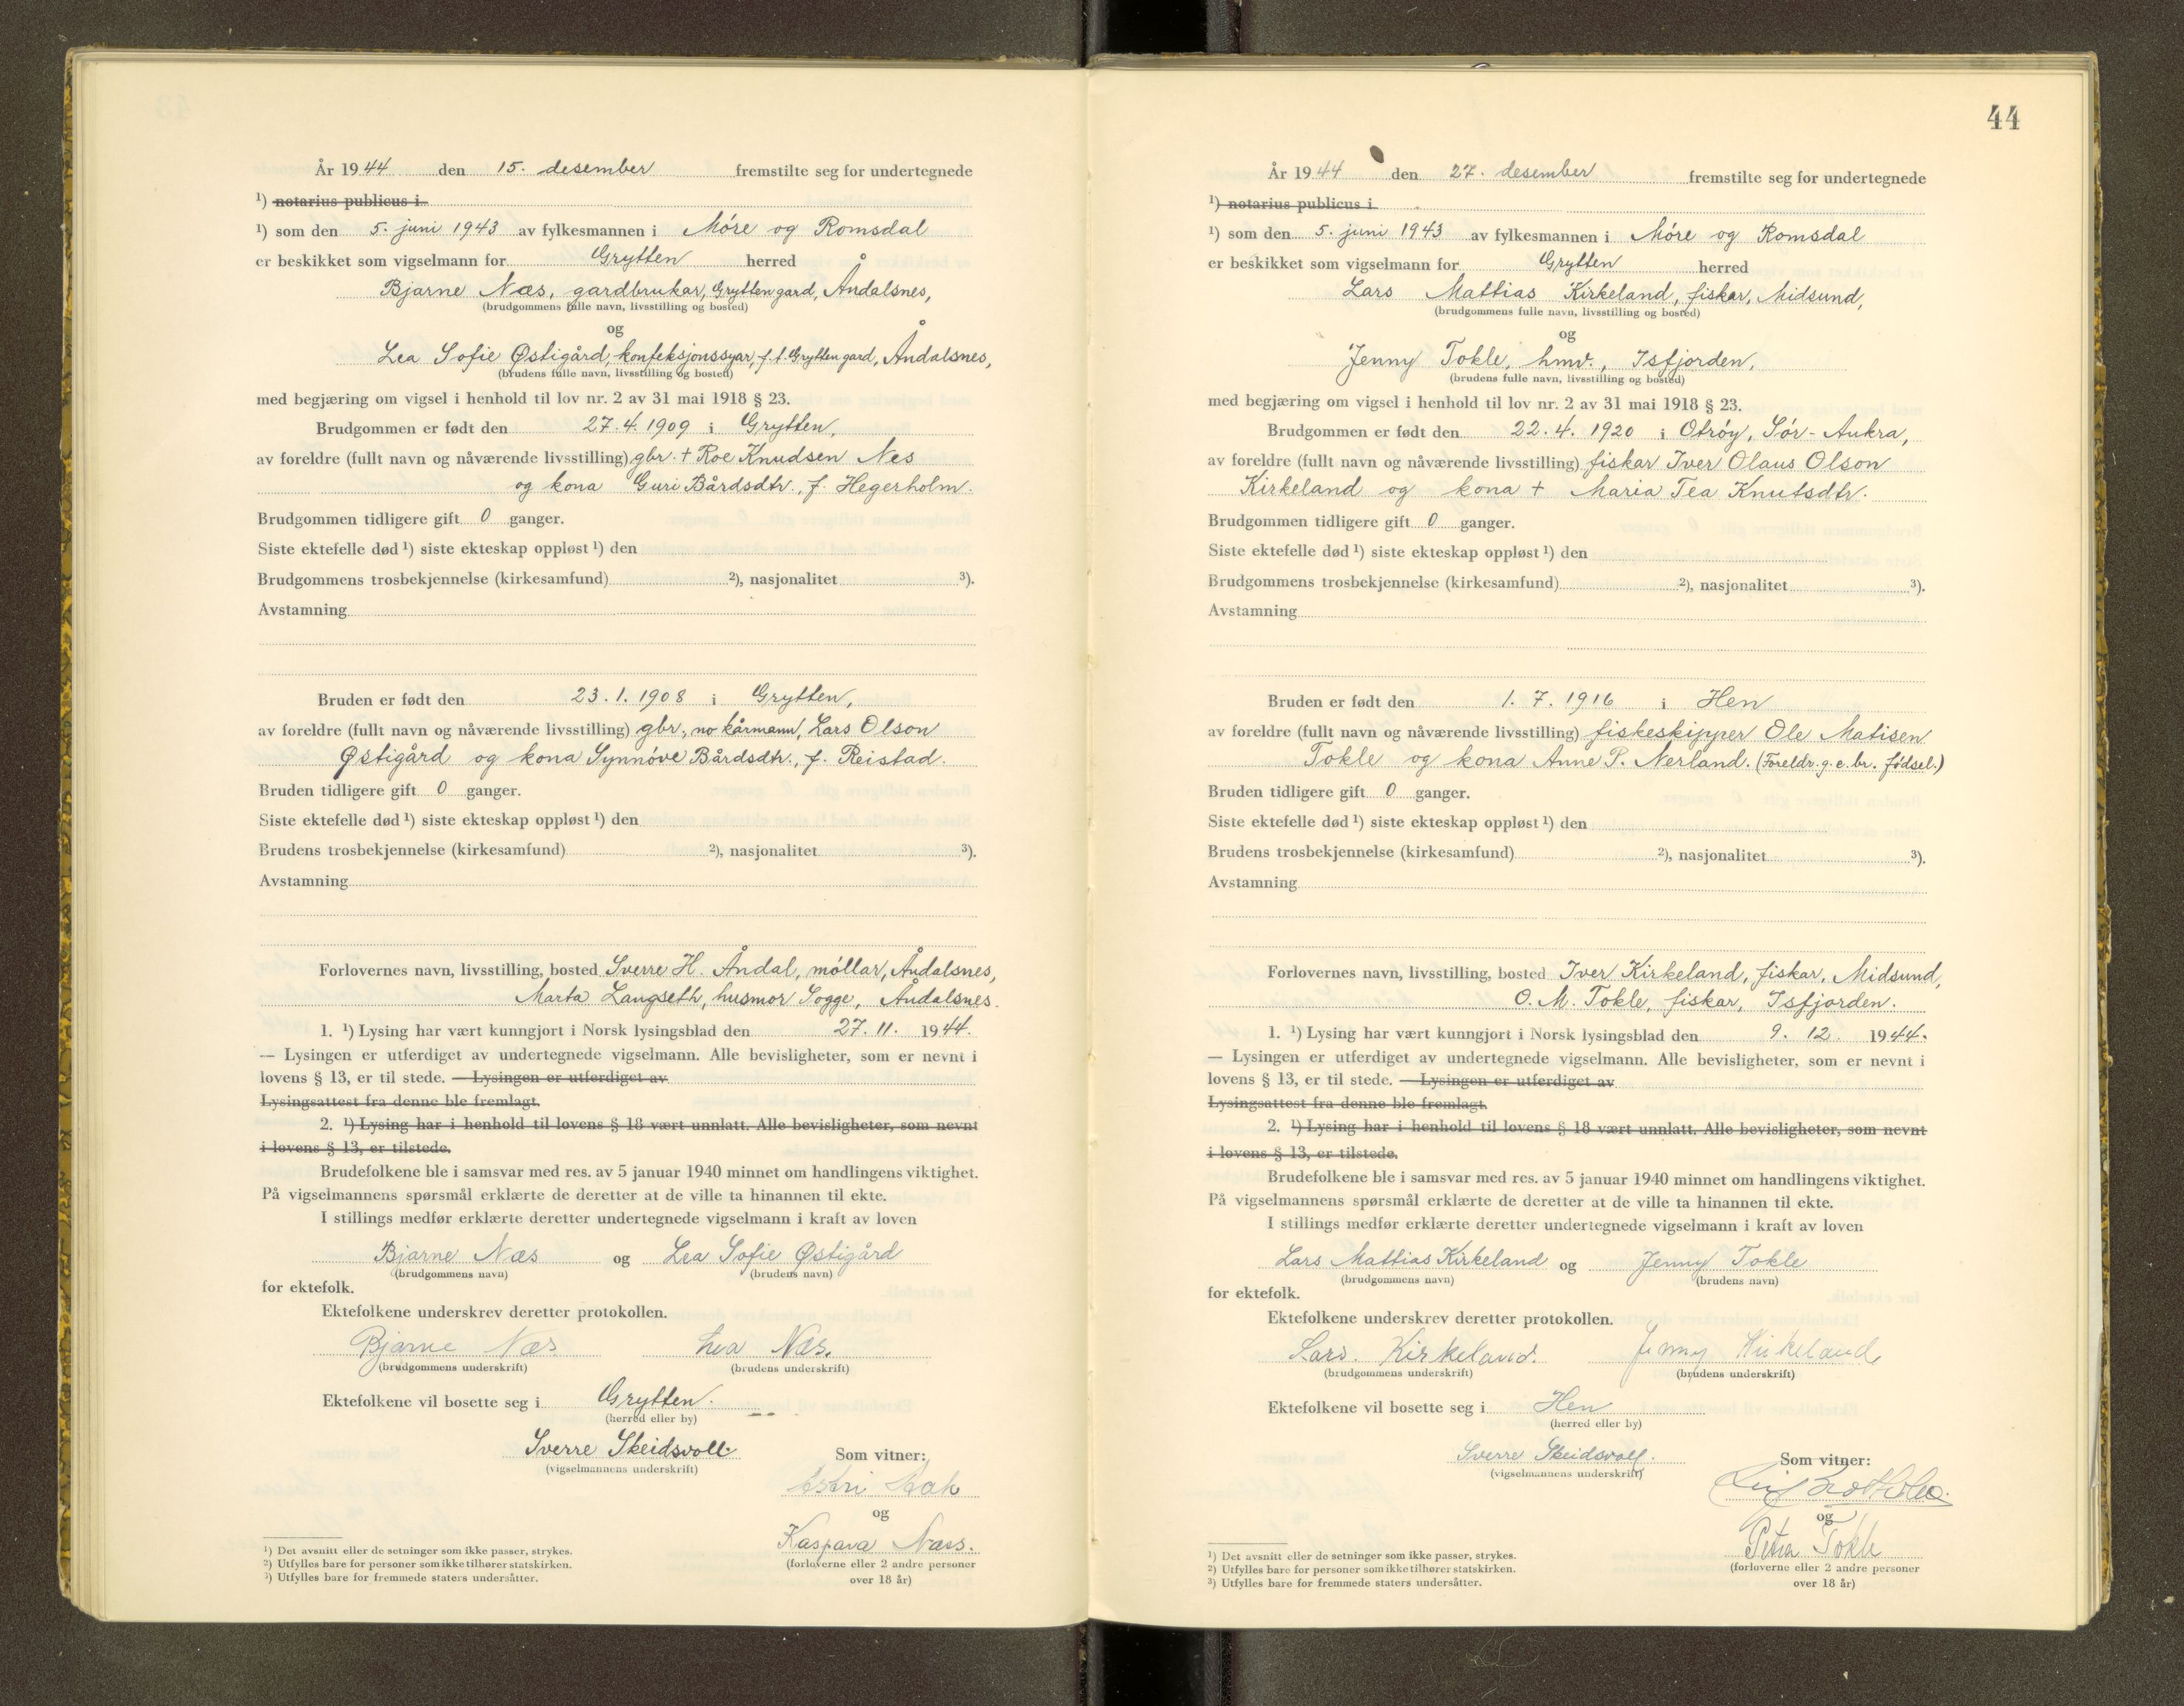 År 1944 den 15. desember fremstilte seg for undertegnede
¹) notarius publicus i
¹) som den 5. juni 1943 av fylkesmannen i Móre og Romsdal
er beskikket som vigselmann for Grytten herred
Bjarne Næs, gardbrukar, Grytten gard, Åndalsnes,
(brudgommens fulle navn, livsstilling og bosted)
og
Lea Sofie Østigård, konfeksjonssyar, f.t. Grytten gard, Åndalsnes,
(brudens fulle navn, livsstilling og bosted)
med begjæring om vigsel i henhold til lov nr. 2 av 31 mai 1918 § 23.
Brudgommen er født den 27.4.1909 i Grytten,
av foreldre (fullt navn og nåværende livsstilling) gbr. + Roe Knudsen Nes
og kona Guri Bårdsdtr., f. Hegerholm.
Brudgommen tidligere gift 0 ganger.
Siste ektefelle død ¹) siste ekteskap oppløst ¹) den
Brudgommens trosbekjennelse (kirkesamfund) ²), nasjonalitet ³).
Avstamning
Bruden er født den 23.1.1908 i Grytten,
av foreldre (fullt navn og nåværende livsstilling) gbr., no kårmann, Lars Olson
Østigård og kona Synnóve Bårdsdtr., f. Reistad.
Bruden tidligere gift 0 ganger.
Siste ektefelle død ¹) siste ekteskap oppløst ¹) den
Brudens trosbekjennelse (kirkesamfund) ²), nasjonalitet ³).
Avstamning
Forlovernes navn, livsstilling, bosted Sverre H. Åndal, móllar, Åndalsnes,
Marta Langseth, husmor Sogge, Åndalsnes.
1. ¹) Lysing har vært kunngjort i Norsk lysingsblad den 27. 11. 1944.
— Lysingen er utferdiget av undertegnede vigselmann. Alle bevisligheter, som er nevnt i
lovens § 13, er til stede. — Lysingen er utferdiget av
Lysingsattest fra denne ble fremlagt.
2. ¹) Lysing har i henhold til lovens § 18 vært unnlatt. Alle bevisligheter, som nevnt
i lovens § 13, er tilstede.
Brudefolkene ble i samsvar med res. av 5 januar 1940 minnet om handlingens viktighet.
På vigselmannens spørsmål erklærte de deretter at de ville ta hinannen til ekte.
I stillings medfør erklærte deretter undertegnede vigselmann i kraft av loven
Bjarne Næs og Lea Sofie Østigård
(brudgommens navn) (brudens navn)
for ektefolk.
Ektefolkene underskrev deretter protokollen.
Bjarne Næs Lea Næs.
(brudgommens underskrift) (brudens underskrift)
Ektefolkene vil bosette seg i Grytten.
(herred eller by)
Sverre Skeidsvoll. Som vitner:
(vigselmannens underskrift)
og
Kaspara Næss.
(forloverne eller 2 andre personer
over 18 år)
¹) Det avsnitt eller de setninger som ikke passer, strykes.
²) Utfylles bare for personer som ikke tilhører statskirken.
³) Utfylles bare for fremmede staters undersåtter.
44
År 1944 den 27. desember fremstilte seg for undertegnede
¹) notarius publicus i
¹) som den 5. juni 1943 av fylkesmannen i Móre og Romsdal
er beskikket som vigselmann for Grytten herred
Lars Mattias Kirkeland, fiskar, Midsund,
(brudgommens fulle navn, livsstilling og bosted)
og
Jenny Tokle, hmv., Isfjorden,
(brudens fulle navn, livsstilling og bosted)
med begjæring om vigsel i henhold til lov nr. 2 av 31 mai 1918 § 23.
Brudgommen er født den 22.4.1920 i Otróy, Sór-Aukra,
av foreldre (fullt navn og nåværende livsstilling) fiskar Iver Olaus Olson
Kirkeland og kona + Maria Tea Knutsdtr.
Brudgommen tidligere gift 0 ganger.
Siste ektefelle død ¹) siste ekteskap oppløst ¹) den
Brudgommens trosbekjennelse (kirkesamfund) ²), nasjonalitet ³).
Avstamning
Bruden er født den 1. 7. 1916 i Hen
av foreldre (fullt navn og nåværende livsstilling) fiskeskipper Ole Matisen
Tokle og kona Anne P. Nerland. (Foreldr. g. e. br. fódsel.)
Bruden tidligere gift 0 ganger.
Siste ektefelle død ¹) siste ekteskap oppløst ¹) den
Brudens trosbekjennelse (kirkesamfund) ²), nasjonalitet ³).
Avstamning
Forlovernes navn, livsstilling, bosted Iver Kirkeland, fiskar, Midsund,
O. M. Tokle, fiskar, Isfjorden.
1. ¹) Lysing har vært kunngjort i Norsk lysingsblad den 9. 12. 1944.
— Lysingen er utferdiget av undertegnede vigselmann. Alle bevisligheter, som er nevnt i
lovens § 13, er til stede. — Lysingen er utferdiget av
Lysingsattest fra denne ble fremlagt.
2. ¹) Lysing har i henhold til lovens § 18 vært unnlatt. Alle bevisligheter, som nevnt
i lovens § 13, er tilstede.
Brudefolkene ble i samsvar med res. av 5 januar 1940 minnet om handlingens viktighet.
På vigselmannens spørsmål erklærte de deretter at de ville ta hinannen til ekte.
I stillings medfør erklærte deretter undertegnede vigselmann i kraft av loven
Lars Mattias Kirkeland og Jenny Tokle
(brudgommens navn) (brudens navn)
for ektefolk.
Ektefolkene underskrev deretter protokollen.
Lars. Kirkeland. Jenny Kirkeland
(brudgommens underskrift) (brudens underskrift)
Ektefolkene vil bosette seg i Hen
(herred eller by)
Sverre Skeidsvoll. Som vitner:
(vigselmannens underskrift)
og
Petra Tokle
(forloverne eller 2 andre personer
over 18 år)
¹) Det avsnitt eller de setninger som ikke passer, strykes.
²) Utfylles bare for personer som ikke tilhører statskirken.
³) Utfylles bare for fremmede staters undersåtter.